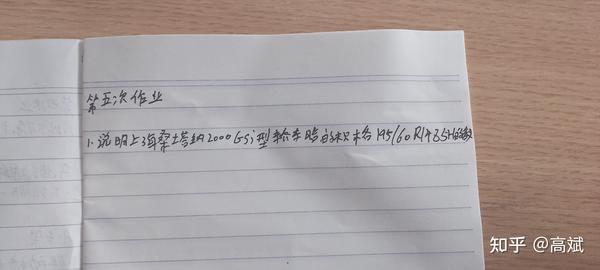 第五次作业
1.说明上海桑塔纳2000GSi型轿车 的 格195/60R1485H的
知乎 @高斌